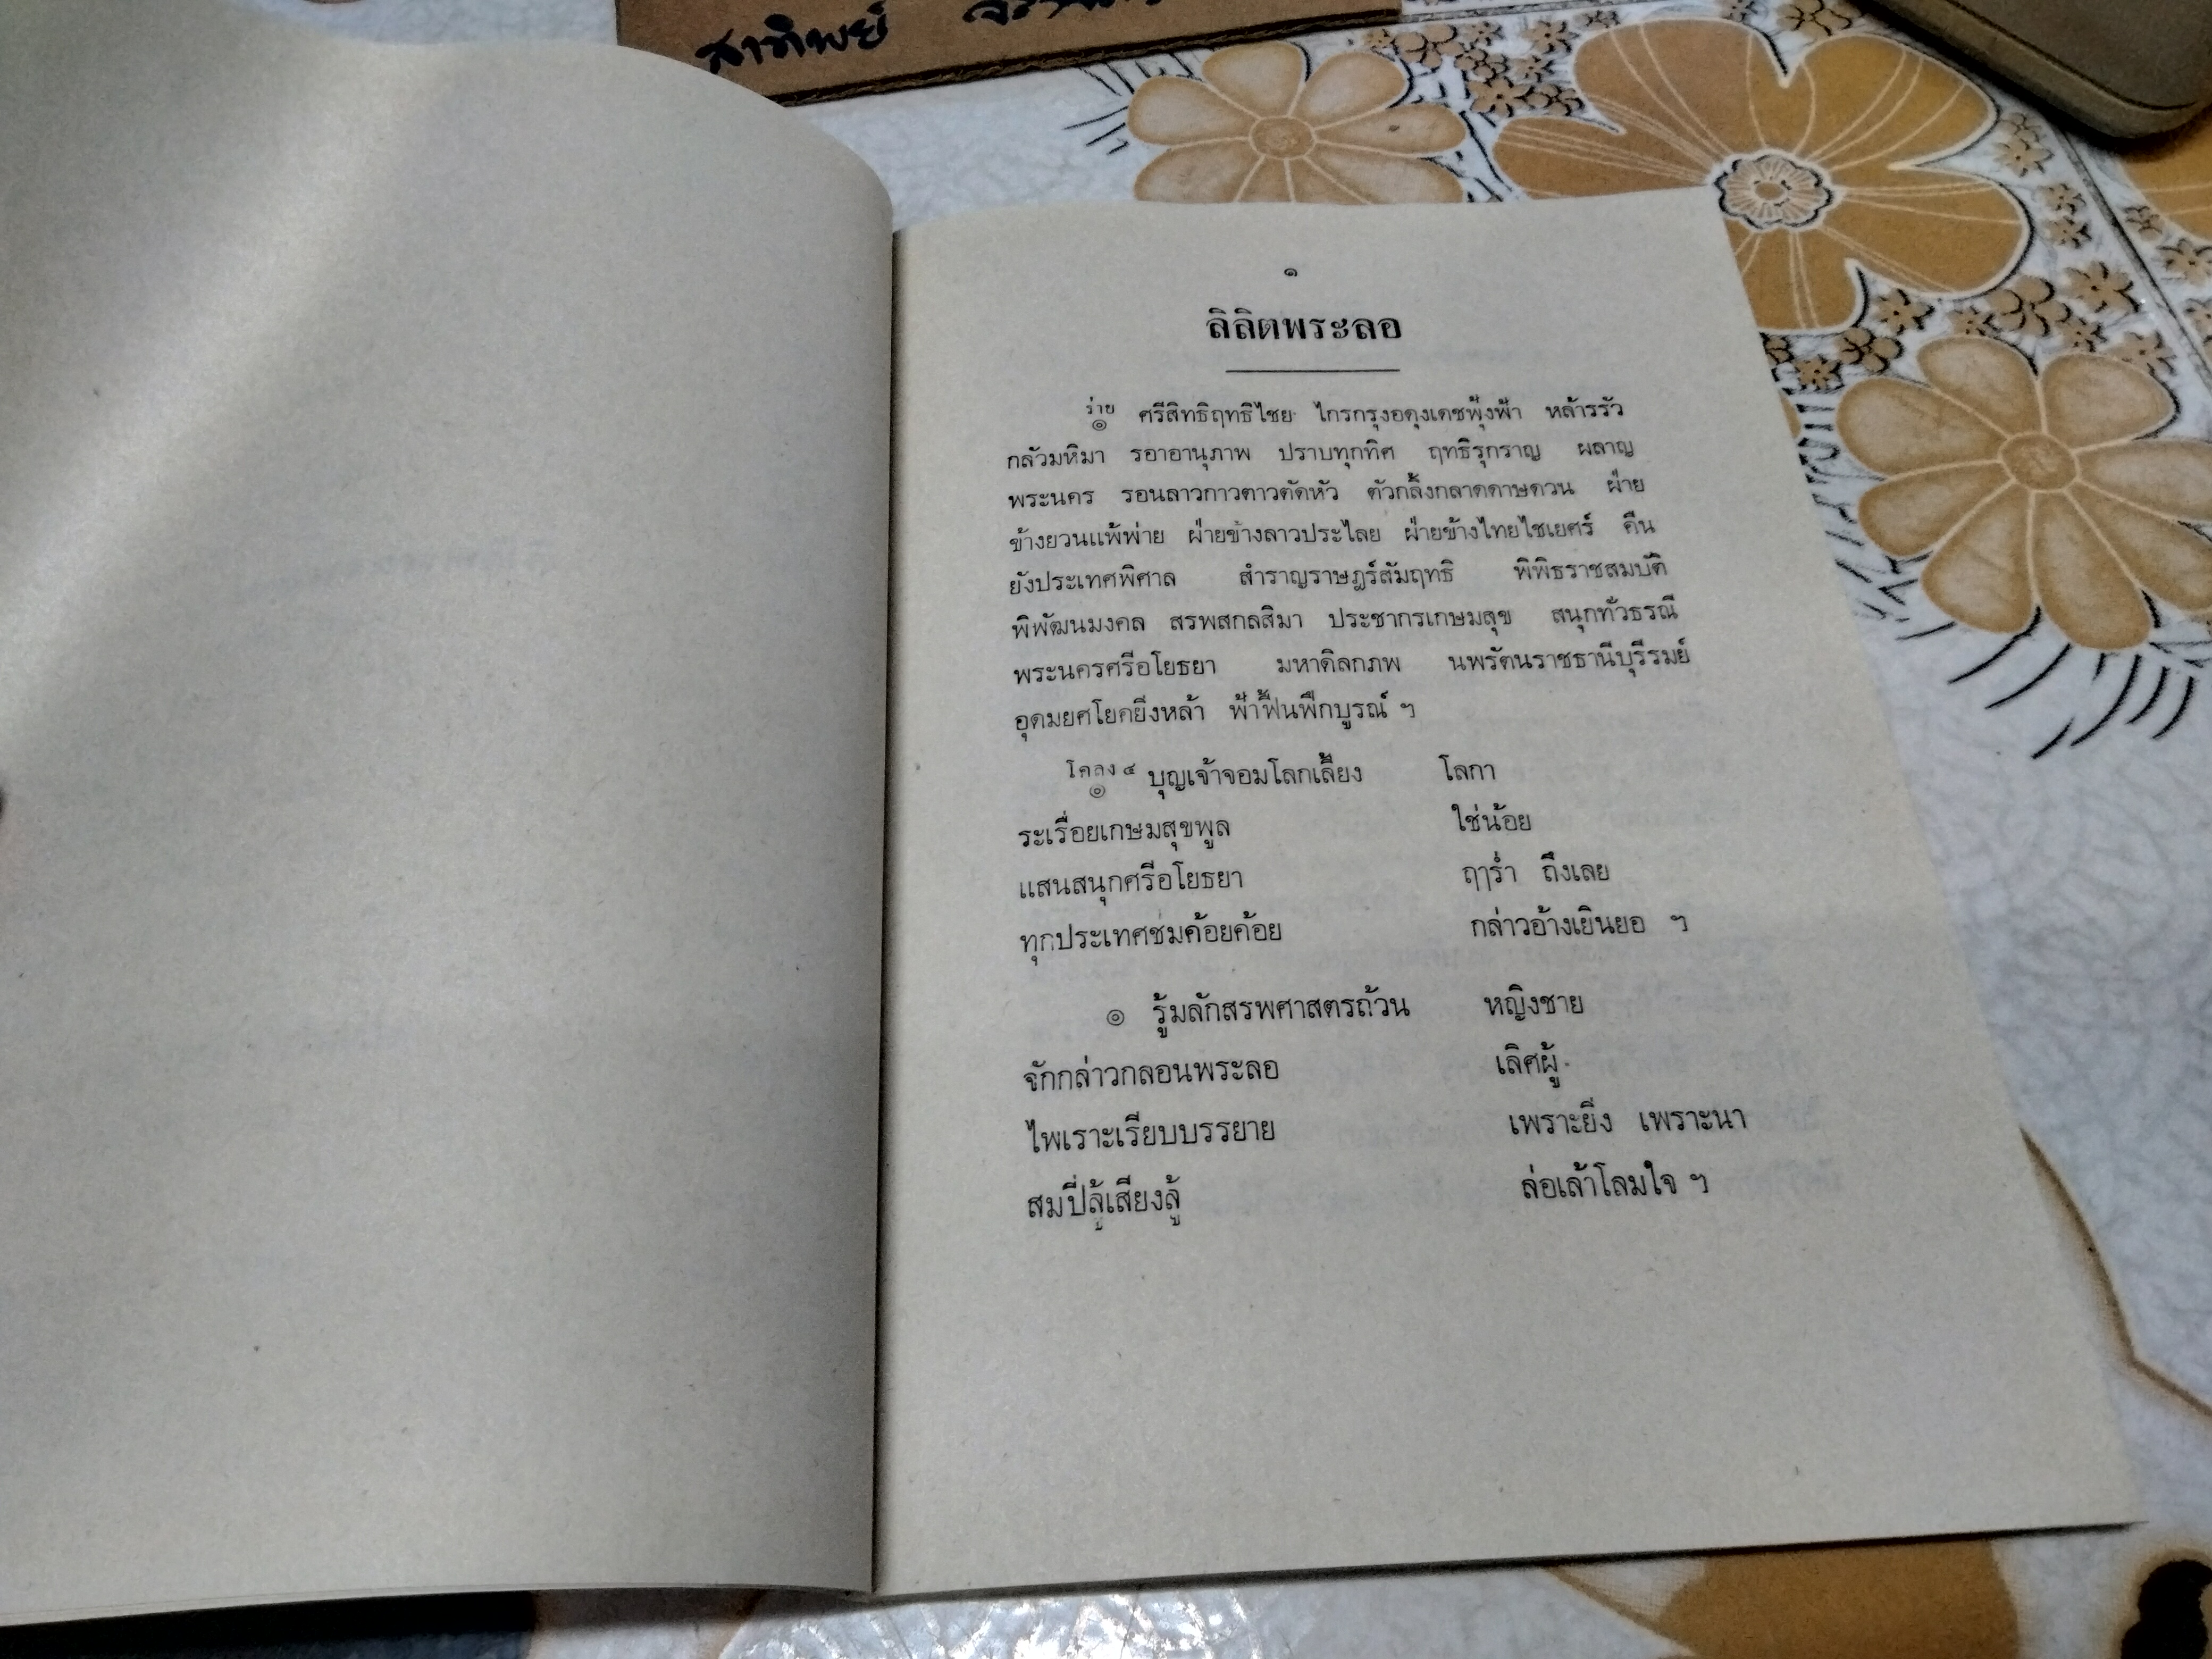 สาทิพย์
๑
ลิลิตพระลอ
ร่าย
๏ ศรีสิทธิฤทธิไชย ไกรกรุงอดุงเดชฟุ้งฟ้า หล้ารรัว
กลัวมหิมา รอาอานุภาพ ปราบทุกทิศ ฤทธิรุกราญ ผลาญ
พระนคร รอนลาวกาวตาวตัดหัว ตัวกลิ้งกลาดดาษดวน ฝ่าย
ข้างยวนแพ้พ่าย ฝ่ายข้างลาวประไลย ฝ่ายข้างไทยไชเยศร์ คืน
ยังประเทศพิศาล สำราญราษฎร์สัมฤทธิ พิพิธราชสมบัติ
พิพัฒนมงคล สรพสกลสิมา ประชากรเกษมสุข สนุกทั่วธรณี
พระนครศรีอโยธยา มหาดิลกภพ นพรัตนราชธานีบุรีรมย์
อุดมยศโยคยิ่งหล้า ฟ้าฟื้นฟึกบูรณ์ ฯ
โคลง ๔
๏ บุญเจ้าจอมโลกเลี้ยง โลกา
ระเรื่อยเกษมสุขพูล ใช่น้อย
แสนสนุกศรีอโยธยา ฤๅร่ำ ถึงเลย
ทุกประเทศชมค้อยค้อย กล่าวอ้างเยินยอ ฯ
๏ รู้มลักสรพศาสตรถ้วน หญิงชาย
จักกล่าวกลอนพระลอ เลิศผู้
ไพเราะเรียบบรรยาย เพราะยิ่ง เพราะนา
สมปี่ลู้เสียงลู้ ล่อเล้าโลมใจ ฯ